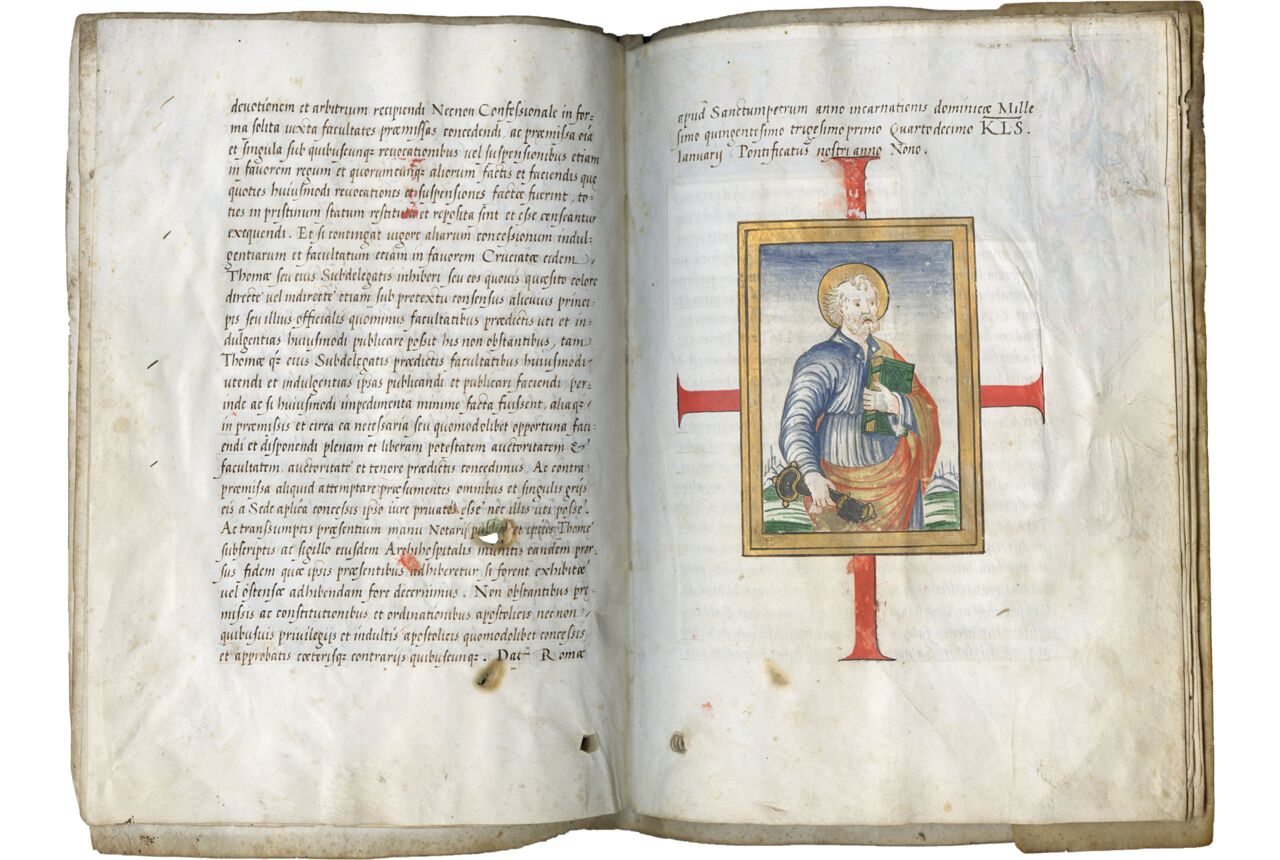 deuotionem et arbitrium recipiendi Necnon Confessionale in for=
ma solita iuxta facultates præmissas concedendi, ac præmissa oĩa
et singula sub quibuscunq; reuocationibus vel suspensionibus etiam
in fauorem regum et quorumcunq; aliorum factis et faciendis que
quoties huiusmodi reuocationes et suspensiones factæ fuerint, to=
ties in pristinum statum restituta et reposita sint et esse censeantur
exequendi. Et si contingat vigore aliarum concessionum indul=
gentiarum et facultatum etiam in fauorem Cruciatæ eidem
Thomæ seu eius Subdelegatis inhiberi seu eos quouis quæsito colore
directe vel indirecte etiam sub pretextu consensus alicuius princi=
pis seu illius officialis quominus facultatibus prædictis vti et in=
dulgentias huiusmodi publicare possit his non obstantibus, tam
Thomæ q; eius Subdelegatis prædictis facultatibus huiusmodi
vtendi et indulgentias ipsas publicandi et publicari faciendi per=
inde ac si huiusmodi impedimenta minime facta fuissent, aliaq;
in præmissis et circa ea necessaria seu quomodolibet opportuna faci=
endi et disponendi plenam et liberam potestatem auctoritatem &
facultatem, auctoritate et tenore prædictis concedimus, Ac contra
præmissa aliquid attemptare præsumentes omnibus et singulis grijs
eis a Sede aplica concessis ipso iure priuatos esse nec illis vti posse.
Ac transsumptis præsentium manu Notarij et Thomæ
subscriptis ac sigillo eiusdem Archihospitalis munitis eandem pror=
sus fidem quæ ipsis præsentibus adhiberetur si forent exhibitæ
vel ostensæ adhibendam fore decernimus. Non obstantibus pre=
missis ac constitutionibus et ordinationibus apostolicis necnon
quibusuis priuilegijs et indultis apostolicis quomodolibet concessis
et approbatis cæterisq; contrarijs quibuscunq;. Dat̃ Romæ
apud Sanctumpetrum anno incarnationis dominicæ Mille
simo quingentesimo trigesimoprimo Quartodecimo KLS.
Ianuarij Pontificatus nostri anno Nono.